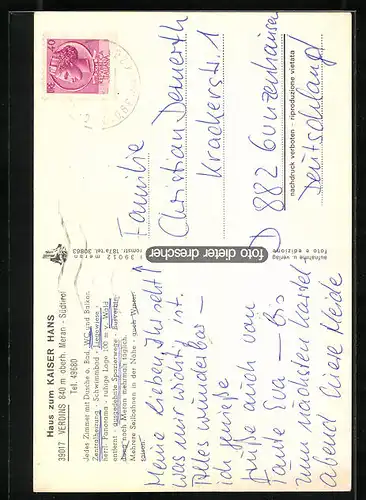 Haus zum KAISER HANS
39017 VERDINS 840 m oberh. Meran - Südtirol
Tel. 49680
Jedes Zimmer mit Dusche o. Bad, WC und Balkon.
Zentralheizung - Schwimmbad - Liegewiese -
herrl. Panorama - ruhige Lage 100 m v. Wald
entfernt - ausgedehnte Spazierwege - Busverbin-
dung nach Meran mehrmals täglich.
Mehrere Seilbahnen in der Nähe - auch Winter-
saison.
Meine Lieben, Ihr seht
was mir wohlig ist.
Alles wunderbar –
ich genieße
Grüße auch von
Tante Eva – Bis
zum nächsten Kanal
abend Eure Heide
foto dieter drescher
39012 meran
romstr. 187a tel. 30863
aufnahme u. verlag
foto e edizione
nachdruck verboten - riproduzione vietata
LIRE 40
Familie
Christian Demerth
Krackerstr. 1
D 882 Gunzenhausen
Deutschland